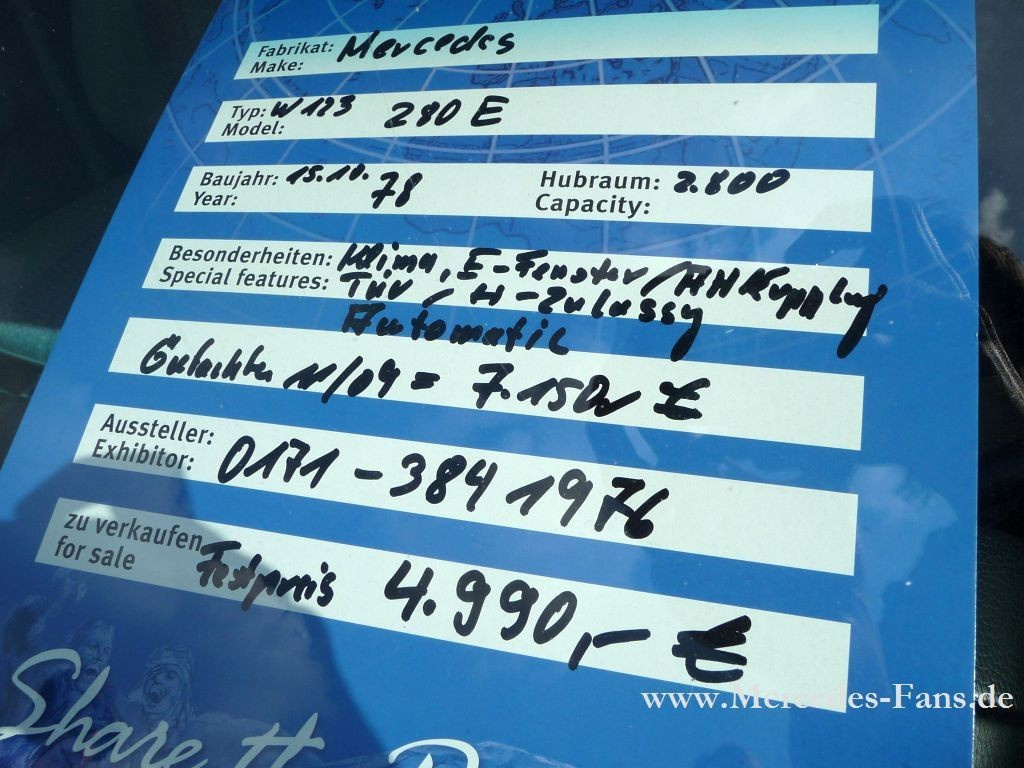 Fabrikat: Mercedes
Make:
Typ: W123 280 E
Model:
Baujahr: 15.10. 78 Hubraum: 2.800
Year: Capacity:
Besonderheiten: Klima, E-Fenster / AHKupplung
Special features: Tür / H-Zulassg
Automatic
Gutachten 11/09 = 7.150,- €
Aussteller: 0171 - 384 1976
Exhibitor:
zu verkaufen Festpreis 4.990,- €
for sale
www.Mercedes-Fans.de
Share th